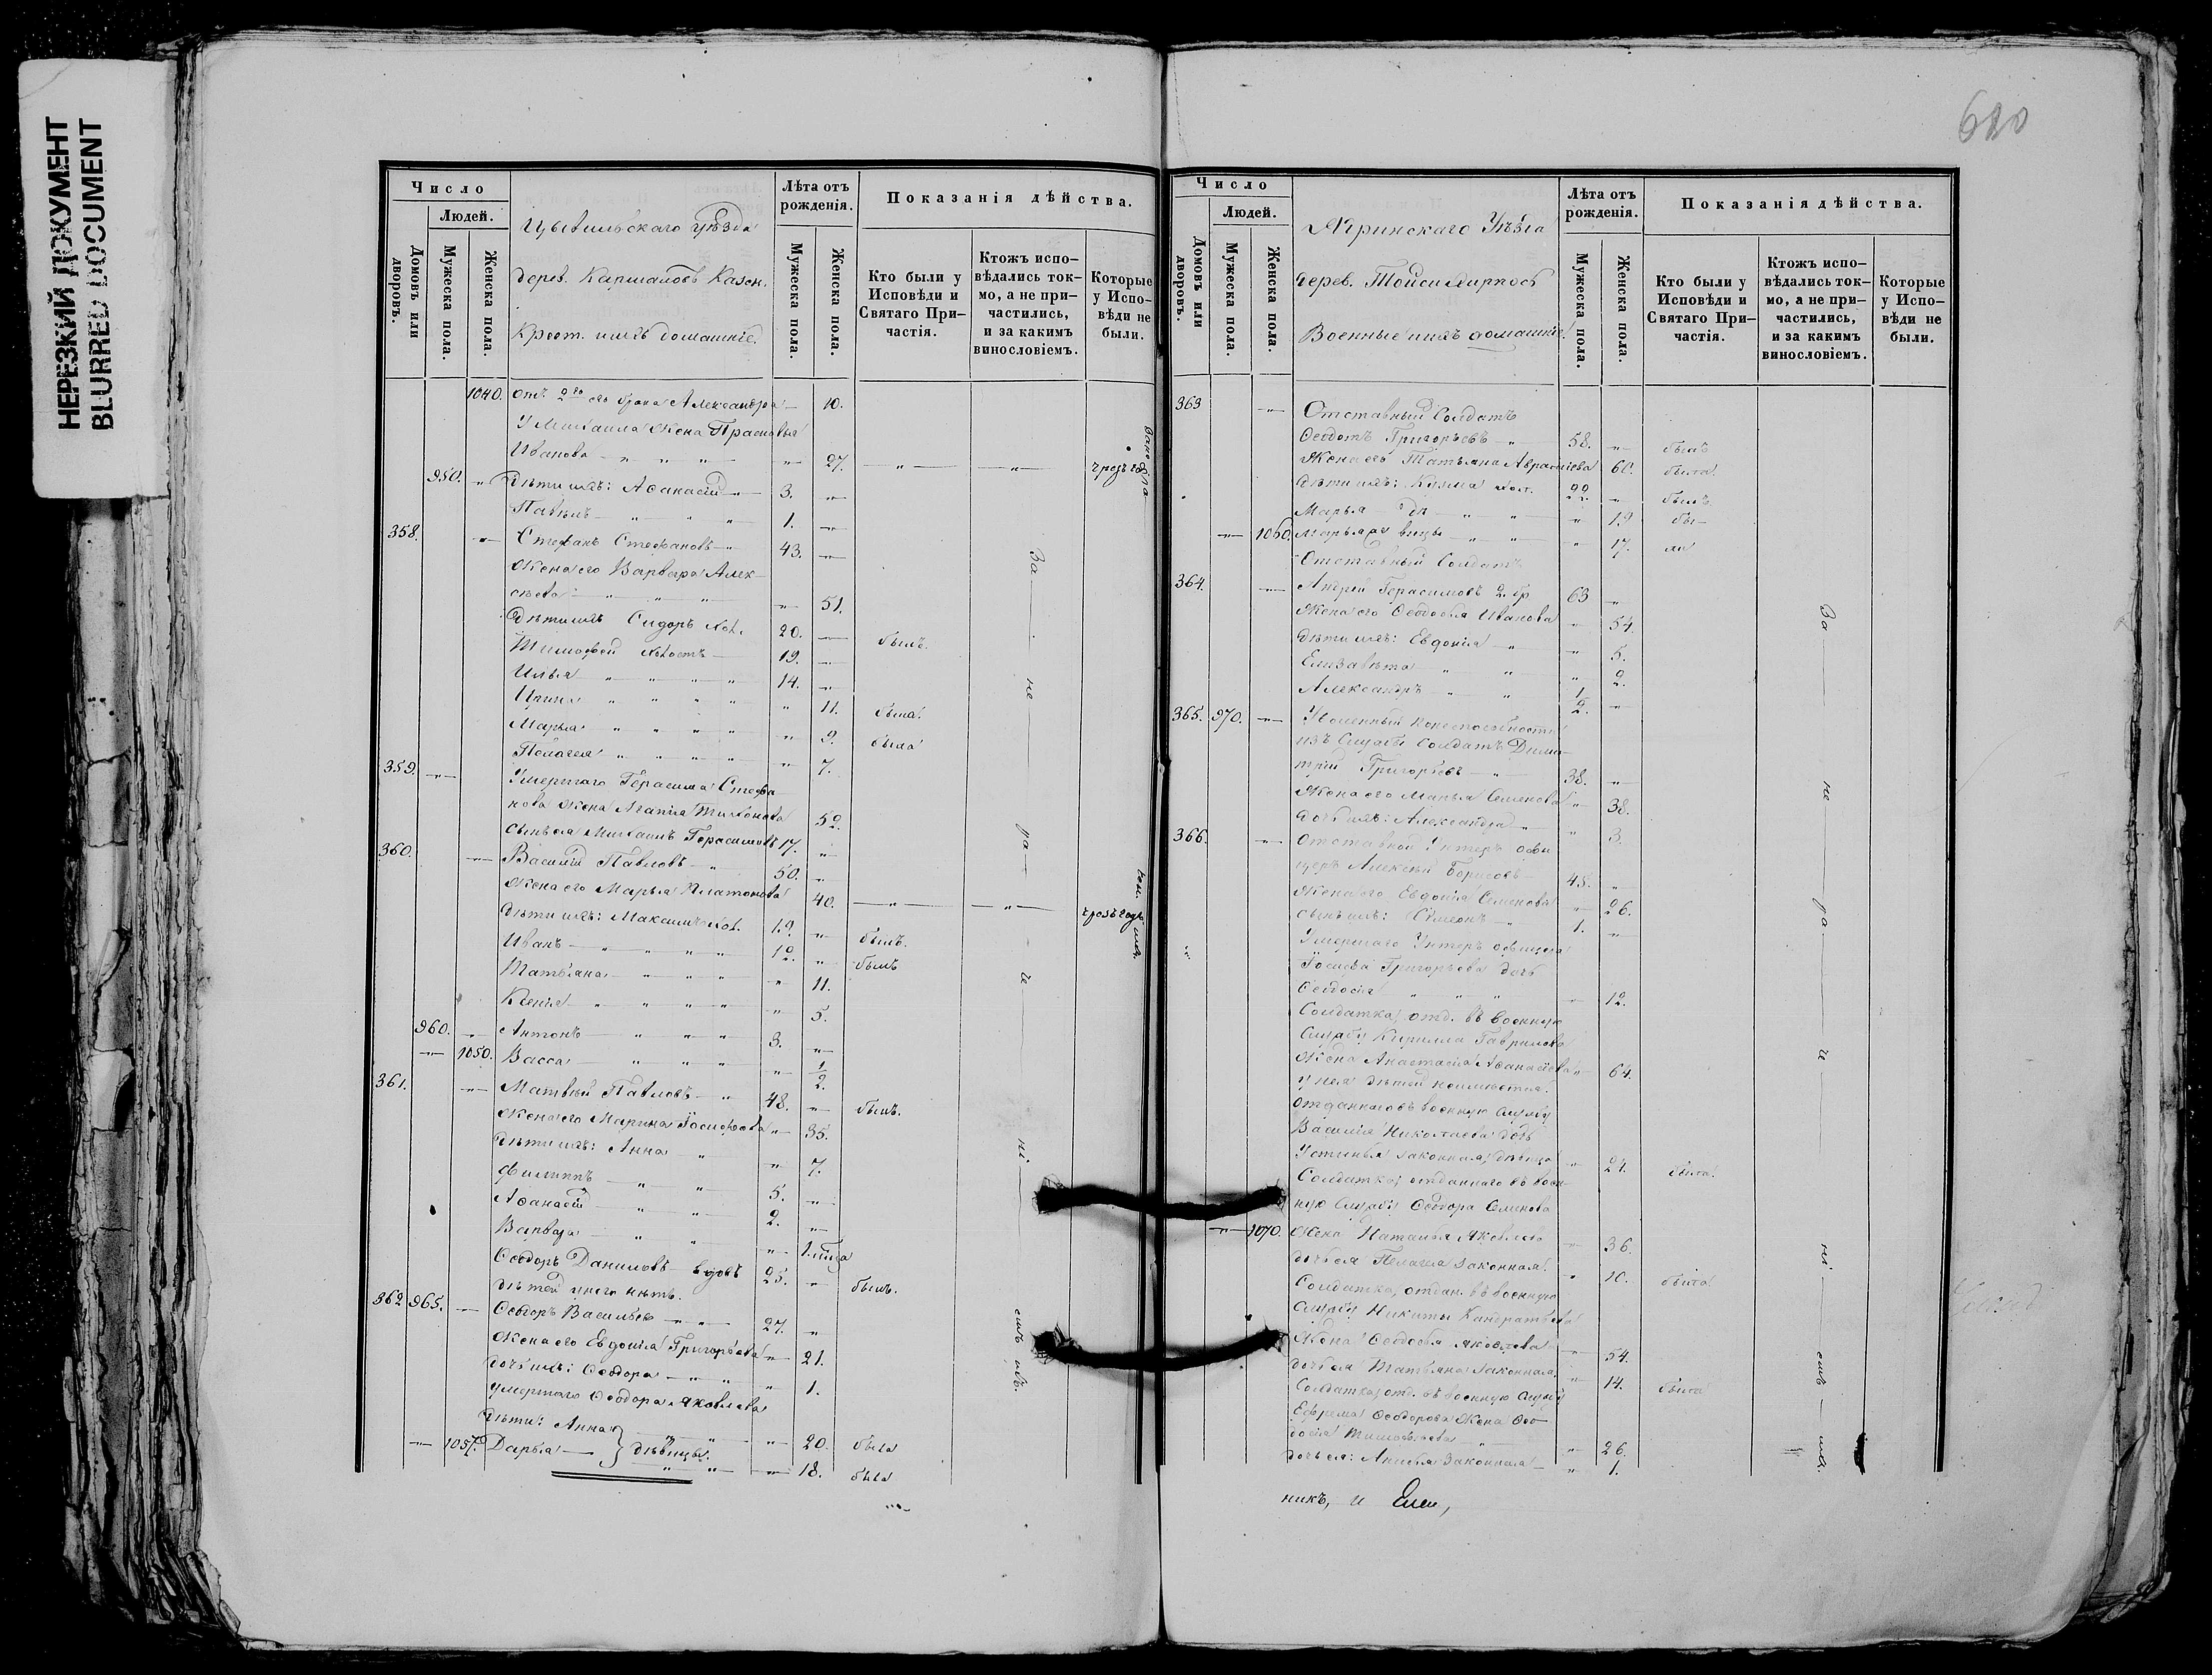 НЕРЕЗКИЙ ДОКУМЕНТ
BLURRED DOCUMENT
680
Число
Людей.
Домовъ или дворовъ.
Мужеска пола.
Женска пола.
Цывильскаго Уѣзда
дерев. Каршаловъ Казен.
Крест. ихъ домашніе.
Лѣта отъ рожденія.
Мужеска пола.
Женска пола.
Показанія дѣйства.
Кто были у Исповѣди и Святаго Причастія.
Ктожъ исповѣдались токмо, а не причастились, и за какимъ винословіемъ.
Которые у Исповѣди не были.
1040. Отъ 2го его брака Александра — 10.
У Михаила Жена Прасковья
Иванова — „ „ „ — 27. — „ — — „ — чрезъ
950. — Дѣти ихъ: Аѳанасій „ — 3. „
Павелъ — „ „ „ 1. —
358. — Стефанъ Стефановъ — 43. —
Жена его Варвара Алек-
сѣева — „ „ „ „ 51.
Дѣти ихъ Сидоръ хол. 20. — былъ.
Тимофей холостъ — 19. —
Илья „ „ „ „ 14. „
Ирина „ „ „ „ „ 11. была.
Марья „ „ „ „ „ 9. была
Пелагея „ „ „ „ „ 7.
359. — Умершаго Герасима Стефа
нова жена Агапія Тихонова 52.
сынъ ея Михаилъ Герасимовъ 17. „
360. — Василій Павловъ — „ 50. „
Жена его Марья Платонова 40. — „ — — „ — чрезъ
Дѣти ихъ: Максимъ хол. 19. „ былъ.
Иванъ — „ „ „ „ 12. „ былъ
Татьяна „ „ „ „ 11.
Ксенія „ „ „ „ „ 5.
960. „ Антонъ — „ „ „ 3. „
— 1050. Васса — „ „ „ „ 1/2.
361. — Матвѣй Павловъ — „ 48. „ былъ.
Жена его Марина Іосифова „ 35.
Дѣти ихъ: Анна „ „ 7.
Филиппъ — „ „ 5. „
Аѳанасій — „ „ 2. „
Варвара — „ „ „ 1.
Ѳеодоръ Даниловъ — вдовъ 25. „ былъ.
дѣтей у него нѣтъ.
362. 965. — Ѳеодоръ Васильевъ „ „ 27. „
Жена его Евдокія Григорьева „ 21.
дочь ихъ: Ѳеодора „ „ „ 1.
умершаго Ѳеодора Яковлева
Дѣти: Анна } „ „ — 20. была
— 1057. Дарья — } дѣвицы. — 18. была
За — не — ра — че — ні — емъ ихъ.
Число
Людей.
Домовъ или дворовъ.
Мужеска пола.
Женска пола.
Ядринскаго Уѣзда
дерев.
Военные ихъ домашніе.
Лѣта отъ рожденія.
Мужеска пола.
Женска пола.
Показанія дѣйства.
Кто были у Исповѣди и Святаго Причастія.
Ктожъ исповѣдались токмо, а не причастились, и за какимъ винословіемъ.
Которые у Исповѣди не были.
363 — Отставный Солдатъ
Ѳеодотъ Григорьевъ — „ 58. „ былъ
Жена его Татьяна 60. была.
Дѣти ихъ: Кузма хол. 22. „ былъ.
Марья — дѣ — „ „ „ 19 бы-
— 1060. Марья вицы — „ „ „ 17. ли
Отставный Солдатъ
364. — Андрей Герасимовъ 2. бр 63 „
Жена его Ѳеодосья Иванова „ 54.
Дѣти ихъ: Евдокія „ „ 5.
Елизавета „ „ „ 2.
Александръ „ „ 1/2. „
365. 970. — Уволенный
изъ Службы Солдатъ Дими-
трій Григорьевъ — „ 38. „
Жена его Марья Семенова „ 38.
Дочь ихъ: Александра „ „ 3.
366. — Отставной Унтеръ офи
церъ Алексѣй Борисовъ — 45. „
Жена его Евдокія Семенова „ 26.
сынъ ихъ: Симеонъ „ 1. „
Умершаго Унтеръ офицера
Іосифа Григорьева дочь
Ѳеодосія „ „ „ „ 12.
Солдатка, отд. въ военную
Службу Кирилла Гаврилова
Жена Анастасія Аѳанасьева „ 64.
у нея дѣтей неимѣется.
Отданнаго въ военную Службу
Василія Николаева дочь
Устинья законная, дѣвица „ 21. была.
Солдатка, отданнаго въ воен-
ную Службу Ѳеодора Семенова
— 1070. Жена Наталья Яковлева „ 36.
дочь ея Пелагея законная. „ 10. была
Солдатка, отдан. въ военную
Службу Никиты Кандратьева
Жена Ѳеодосья Яковлева „ 54.
дочь ея Татьяна законная. „ 14. была
Солдатка, отд. въ военную Службу
Ефрема Ѳеодорова Жена Ѳео-
досія Тимоѳеева „ „ 26.
дочь ея: Анисья законная — „ 1.
За — не — ра — че — ні — емъ — ихъ.
никъ, и Елен,